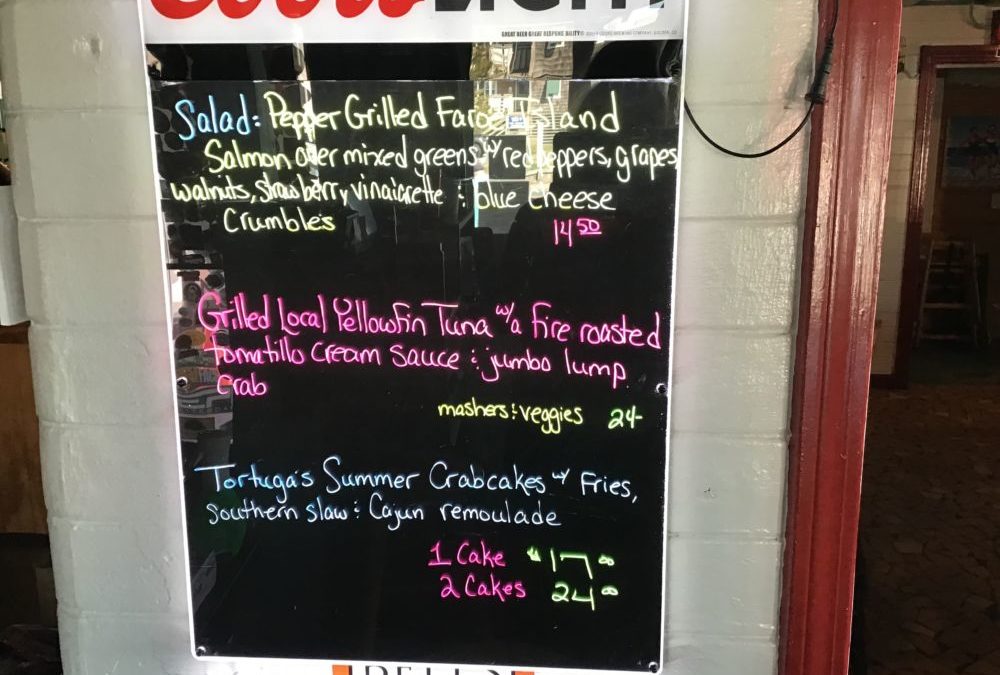 Coors LIGHT
GREAT BEER GREAT RESPONSIBILITY®
Salad: Pepper Grilled Faroe Island
Salmon over mixed greens w/ red peppers, grapes,
walnuts, strawberry, vinaigrette & blue cheese
Crumbles
14 50
Grilled Local Yellowfin Tuna w/a fire roasted
Tomatillo Cream Sauce & jumbo lump
Crab
mashers & veggies 24-
Tortuga's Summer Crabcakes w/ Fries,
Southern slaw & Cajun remoulade
1 Cake $17.00
2 Cakes 24 00